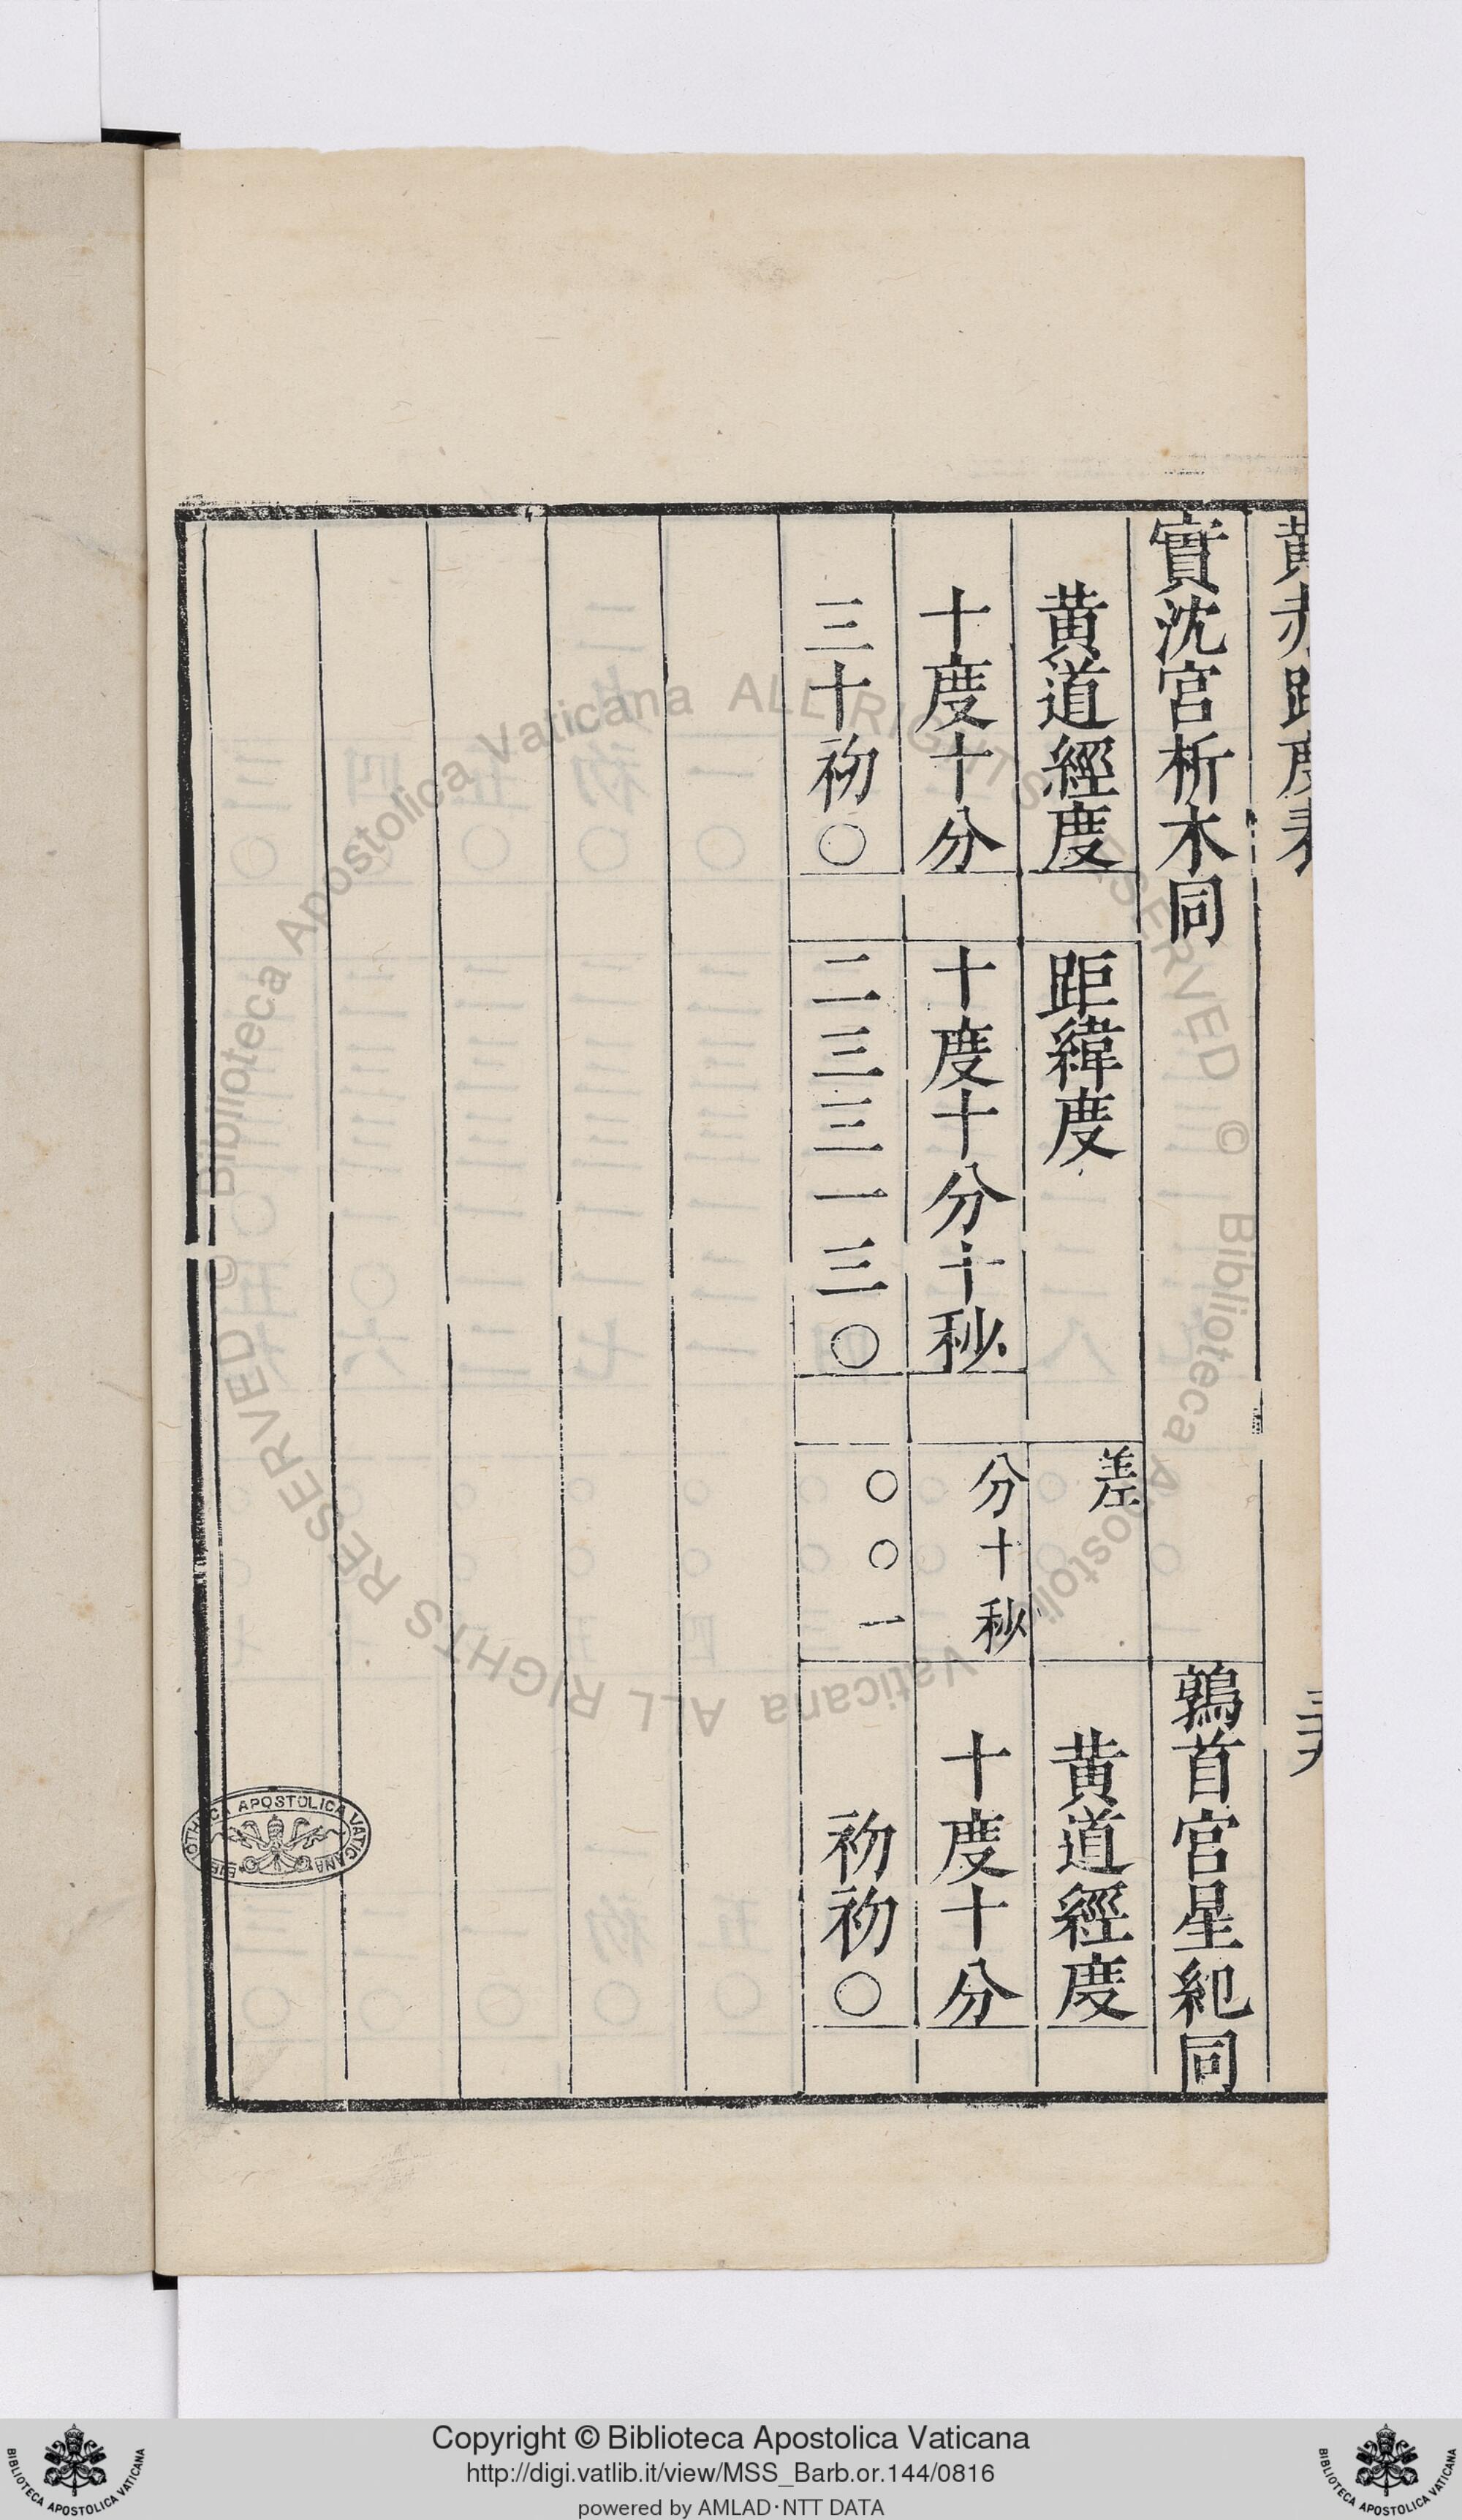 黄赤距度表
三十九
實沈宮析木同
鶉首宮星紀同
黄道經度
距緯度
差
黄道經度
十度十分
十度十分十秒
分十秒
十度十分
三十初〇
二三三一三〇
〇〇一
初初〇
BIBLIOTHECA APOSTOLICA VATICANA
© Biblioteca Apostolica Vaticana ALL RIGHTS RESERVED © Biblioteca Apostolica Vaticana ALL RIGHTS RESERVED
Copyright © Biblioteca Apostolica Vaticana
http://digi.vatlib.it/view/MSS_Barb.or.144/0816
powered by AMLAD·NTT DATA
BIBLIOTECA APOSTOLICA VATICANA
BIBLIOTECA APOSTOLICA VATICANA